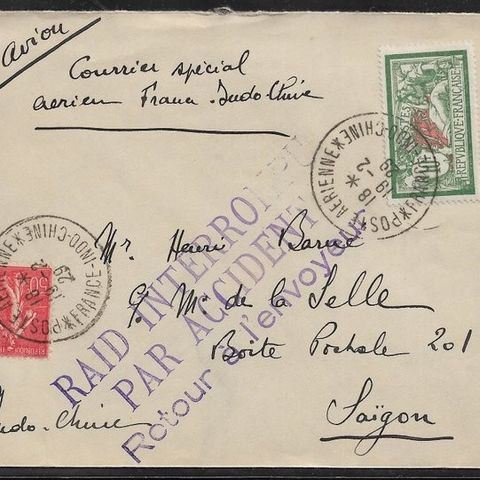 Avion
Courrier spécial
aerien France-Indo Chine
POSTE AERIENNE * FRANCE-INDO-CHINE *
18 -2 29
POSTES
REPUBLIQUE FRANÇAISE
RAID INTERROMPU
PAR ACCIDENT
Retour à l'envoyeur
Mr Henri Barué
c/o Mr de la Selle
Boite Postale 201
Saïgon
Indo-Chine
POSTE AERIENNE * FRANCE-INDO-CHINE *
18 -2 29
50